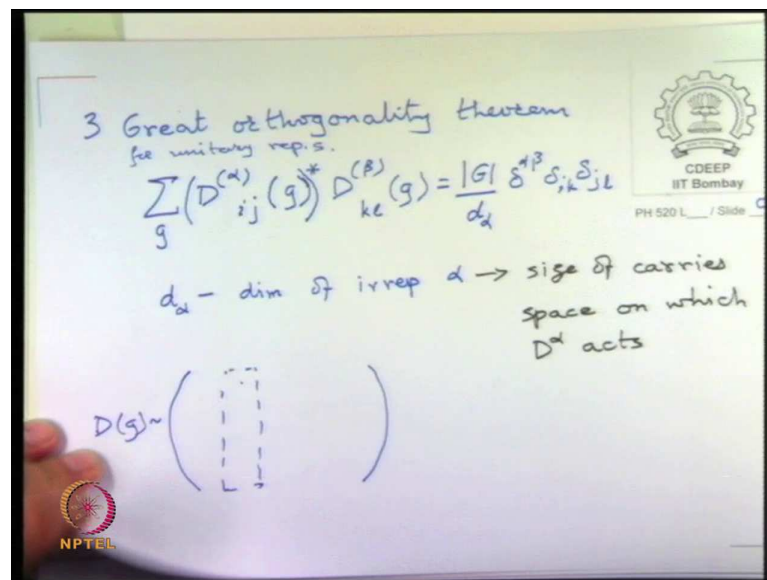 3 Great orthogonality theorem
for unitary rep.s.
∑_g (D^(α)_ij (g))* D^(β)_kl (g) = |G|/d_α δ^αβ δ_ik δ_jl
d_α – dim of irrep α → size of carries
space on which
D^α acts
D(g) ~ ( )
CDEEP
IIT Bombay
PH 520 L___ / Slide
NPTEL